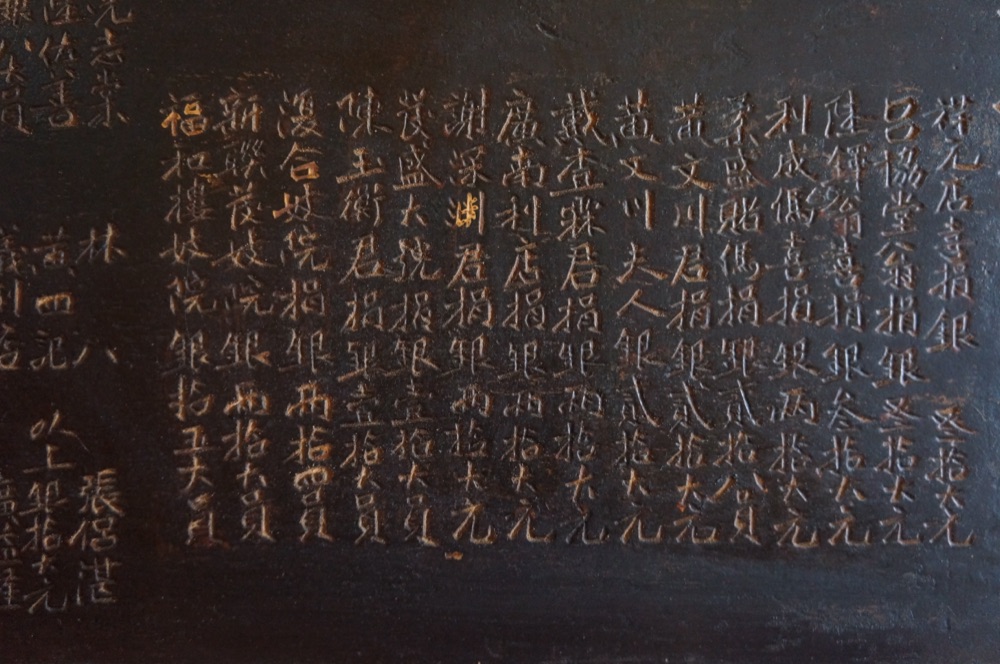 祥元店喜捐銀丞拾大元
呂協堂公翁捐銀丞拾大元
陸鐸翁喜捐銀叁拾大元
利成僑喜捐銀兩拾大元
柔盛賭僑捐銀貳拾八員
黃文川君捐銀貳拾大元
黃文川夫人銀貳拾大元
戴查霖君捐銀兩拾大元
廣南利店捐銀兩拾大元
謝深淵君捐銀兩拾大元
茂盛大號捐銀壹拾大員
陳玉衡君捐銀壹拾大員
復合妓院捐銀兩拾四員
新聯茂妓院銀兩拾大員
福和樓妓院銀拾五大員
林八 張侶湛
黃四記 以上銀拾大元